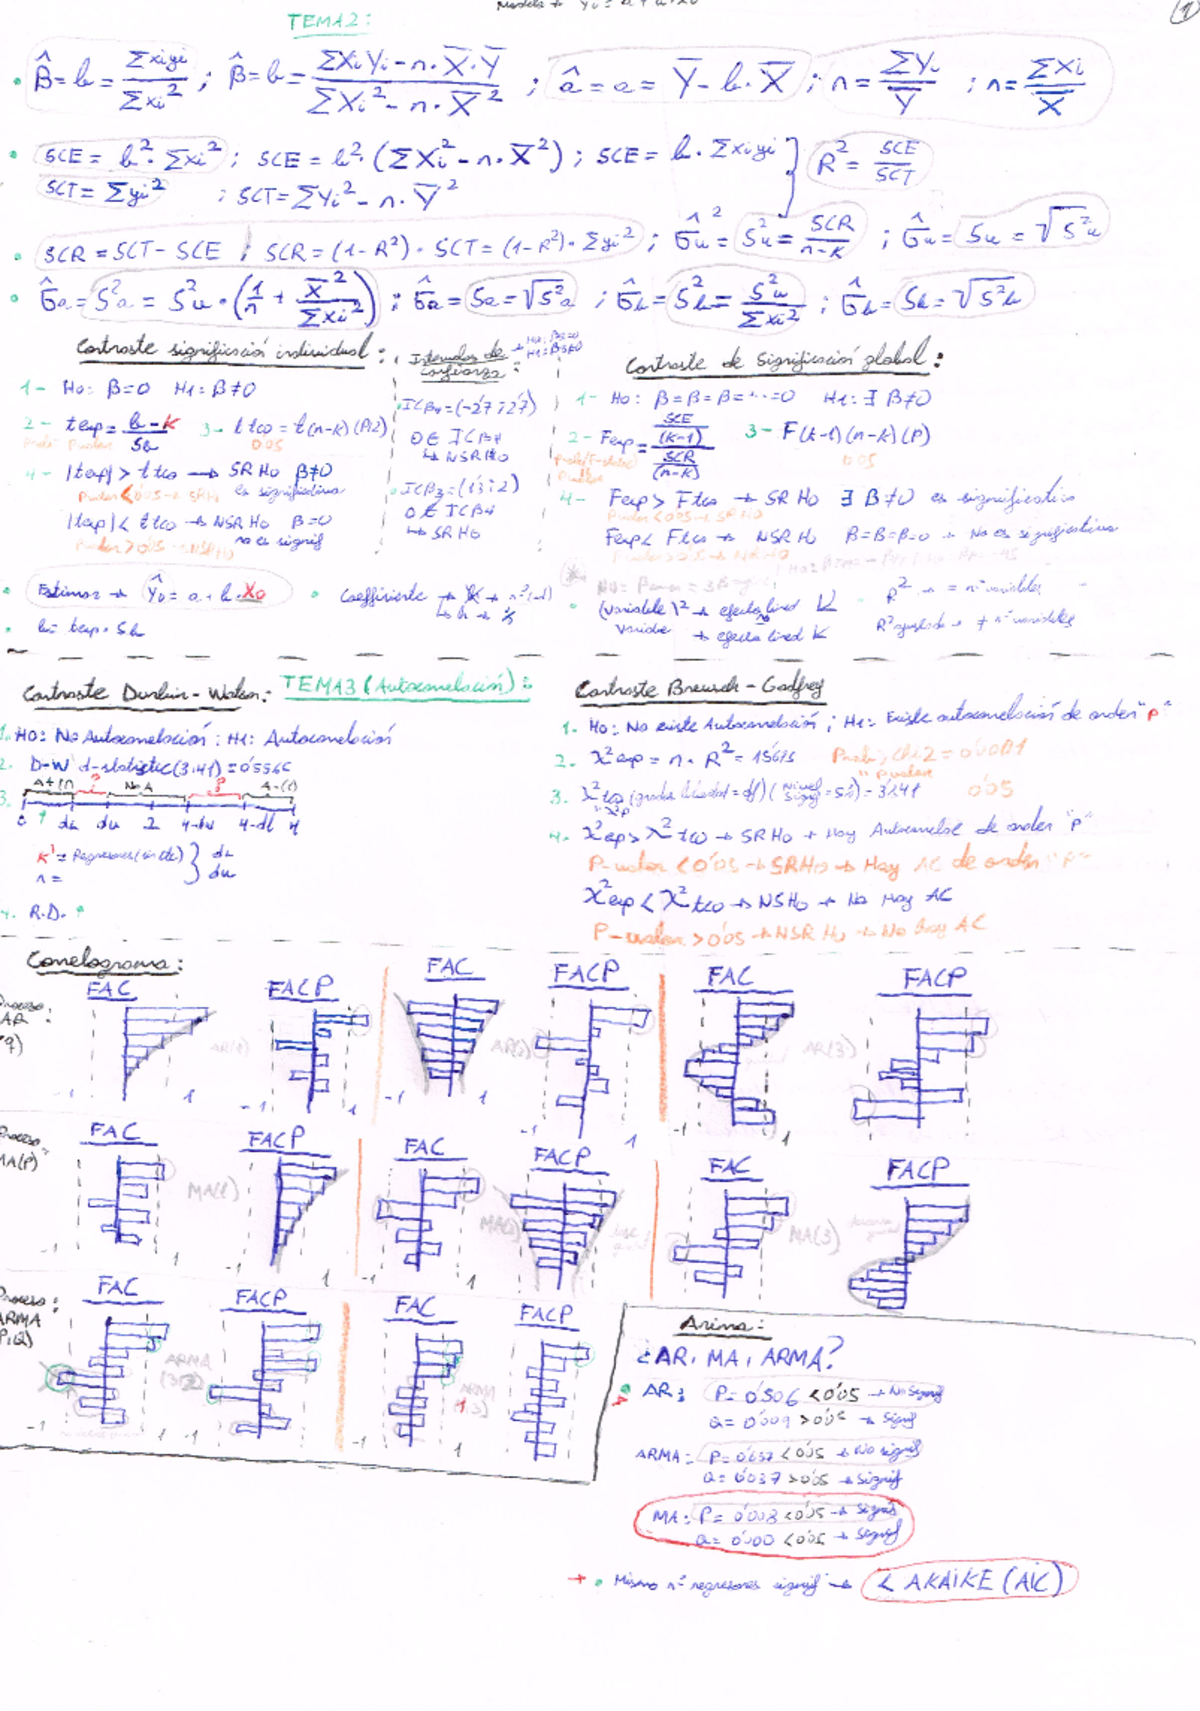 TEMA2:
β̂ = b = Σxiyi / Σxi² ; β̂ = b = (ΣXiYi - n·X̄·Ȳ) / (ΣXi² - n·X̄²) ; â = a = Ȳ - b·X̄ ; n = ΣYi / Ȳ ; n = ΣXi / X̄
SCE = b²·Σxi² ; SCE = b²·(ΣXi² - n·X̄²) ; SCE = b·Σxiyi ] R² = SCE / SCT
SCT = Σyi² ; SCT = ΣYi² - n·Ȳ²
SCR = SCT - SCE ; SCR = (1-R²)·SCT = (1-R²)·Σyi² ; σ̂u² = S²u = SCR / n-k ; σ̂u = Su = √S²u
σ̂a = S²a = S²u·(1/n + X̄² / Σxi²) ; σ̂a = Sa = √S²a ; σ̂b = S²b = S²u / Σxi² ; σ̂b = Sb = √S²b
Contraste significación individual:
1- H0: β=0 H1: β≠0
2- texp = b-K / Sb 3- ttco = t(n-k)(P/2)
0'05
4- |texp| > ttco → SRH0 β≠0
P valor < 0'05 → SRH0 es significativa
|texp| < ttco → NSRH0 β=0
P valor > 0'05 → NSRH0 no es signif
Intervalos de Confianza:
ICβ4 = (-2'7 ; 2'7)
0 ∈ ICβ4
↳ NSRH0
ICβ3 = (1'3 ; 2)
0 ∉ ICβ4
↳ SRH0
Contraste de Significación global:
1- H0: β=β=β=...=0 H1: ∃ β≠0
2- Fexp = SCE/(k-1) / SCR/(n-k) 3- F(k-1)(n-k)(P)
0'05
4- Fexp > Ftco → SRH0 ∃ β≠0 es significativo
P valor < 0'05 → SRH0
Fexp < Ftco → NSRH0 β=β=β=0 → No es significativa
P valor > 0'05 → NSRH0
Estimar → Ŷ0 = a + b·X0
Coeficiente →
b = texp·Sb
(variable)² → efecto lineal K
variable → efecto lineal K
R² → = nº variables
R² ajustado → ≠ nº variables
Contraste Durbin-Watson: TEMA3 (Autocorrelación):
1. H0: No Autocorrelación ; H1: Autocorrelación
2. D-W d-statistic (3,41) = 0'556
3. A+(1) ? No A ? A-(1)
0 dL du 2 4-du 4-dL 4
K' = Regresores (sin cte) } dL
n = } du
4. R.D. ↑
Contraste Breusch-Godfrey
1. H0: No existe Autocorrelación ; H1: Existe autocorrelación de orden "P"
2. χ²exp = n·R² = 15'615 Prob, Chi2 = 0'0001
"P valor
3. χ²tco (grados libertad = df) (nivel signif = 5%) = 3'841 0'05
4. χ²exp > χ²tco → SRH0 → Hay Autocorrelac de orden "P"
P-valor < 0'05 → SRH0 → Hay AC de orden "P"
χ²exp < χ²tco → NSH0 → No hay AC
P-valor > 0'05 → NSRH0 → No hay AC
Correlograma:
Proceso AR
FAC FACP FAC FACP FAC FACP
AR(1) AR(2) AR(3)
-1 1 -1 1 -1 1 -1 1 -1 1
Proceso MA(P)
FAC FACP FAC FACP FAC FACP
MA(1) MA(2) MA(3)
-1 1 -1 1 -1 1
Proceso: ARMA
FAC FACP FAC FACP
-1 1 -1 1 -1 1
Arima:
¿AR, MA, ARMA?
AR: P = 0'506 < 0'05 → No Signif
Q = 0'009 > 0'05 → Signif
ARMA: P = 0'637 < 0'05 → No signif
Q = 0'037 > 0'05 → Signif
MA: P = 0'003 < 0'05 → Signif
Q = 0'000 < 0'05 → Signif
Mismo nº regresores signif → < AKAIKE (AIC)